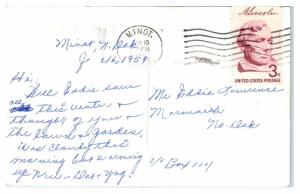 MINOT,
PM
Lincoln
3¢
UNITED STATES POSTAGE
Minot, N. Dak
1959
Hi:
Well Eddie saw
this water &
thought of your
the lawn & garden,
it is cloudy this
morning but warming
up
Mr Eddie Lawrence
Marmarth
No-Dak
% Box 111